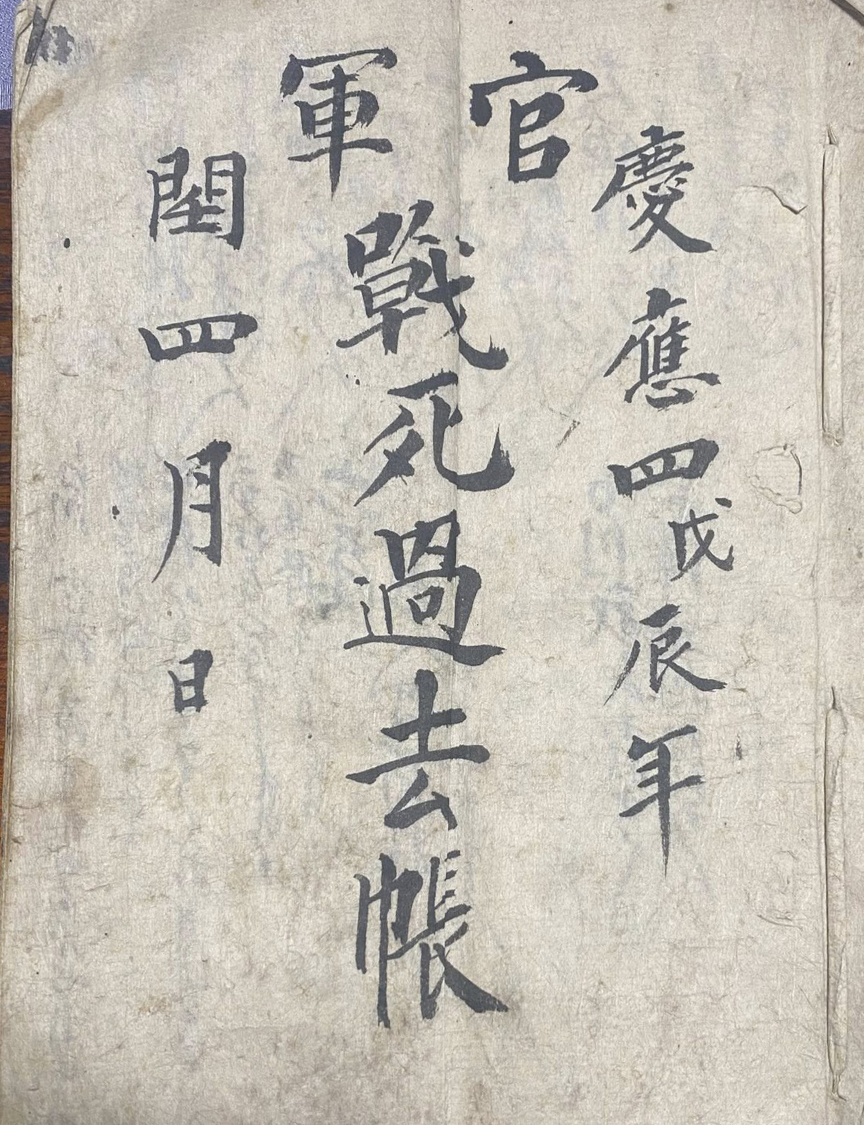 慶應四戊辰年
官軍
戰死過去帳
閏四月日